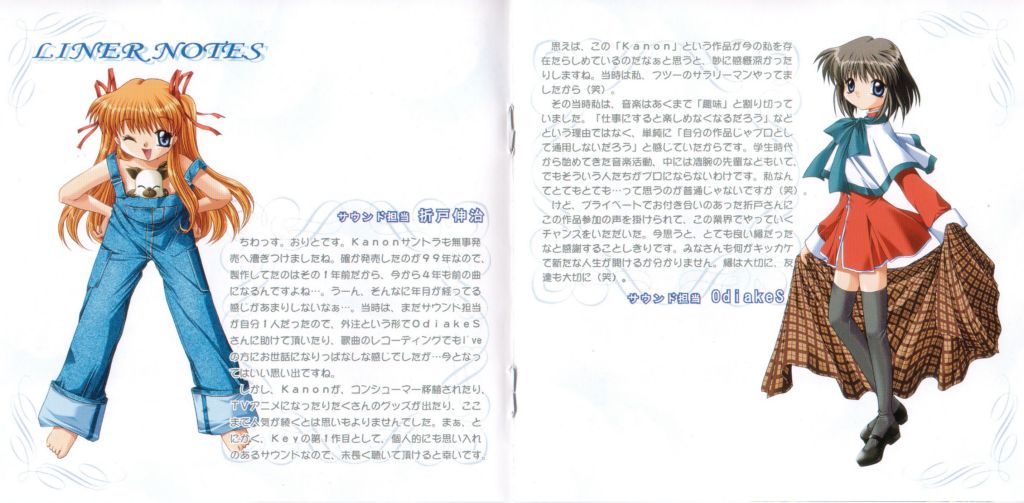 LINER NOTES
サウンド担当 折戸伸治
ちわっす。おりとです。Kanonサントラも無事発
売へ漕ぎつけましたね。確か発売したのが99年なので、
製作してたのはその1年前だから、今から4年も前の曲
になるんですよね…。うーん、そんなに年月が経ってる
感じがあまりしないなぁ…。当時は、まだサウンド担当
が自分1人だったので、外注という形でOdiakeS
さんに助けて頂いたり、歌曲のレコーディングでもI've
の方にお世話になりっぱなしな感じでしたが…今となっ
てはいい思い出ですね。
しかし、Kanonが、コンシューマー移植されたり、
TVアニメになったりたくさんのグッズが出たり、ここ
まで人気が続くとは思いもよりませんでした。まぁ、と
にかく、Keyの第1作目として、個人的にも思い入れ
のあるサウンドなので、末長く聴いて頂けると幸いです。
思えば、この「Kanon」という作品が今の私を存
在たらしめているのだなぁと思うと、妙に感慨深かった
りしますね。当時は私、フツーのサラリーマンやってま
したから(笑)。
その当時私は、音楽はあくまで「趣味」と割り切って
いました。「仕事にすると楽しめなくなるだろう」など
という理由ではなく、単純に「自分の作品じゃプロとし
て通用しないだろう」と感じていたからです。学生時代
から始めてきた音楽活動、中には凄腕の先輩などもいて、
でもそういう人たちがプロにならないわけです。私なん
てとてもとても…って思うのが普通じゃないですか(笑)。
けど、プライベートでお付き合いのあった折戸さんに
この作品参加の声を掛けられて、この業界でやっていく
チャンスをいただいた。今思うと、とても良い縁だった
なと感謝することしきりです。みなさんも何がキッカケ
で新たな人生が開けるか分かりません。縁は大切に、友
達も大切に(笑)。
サウンド担当 OdiakeS